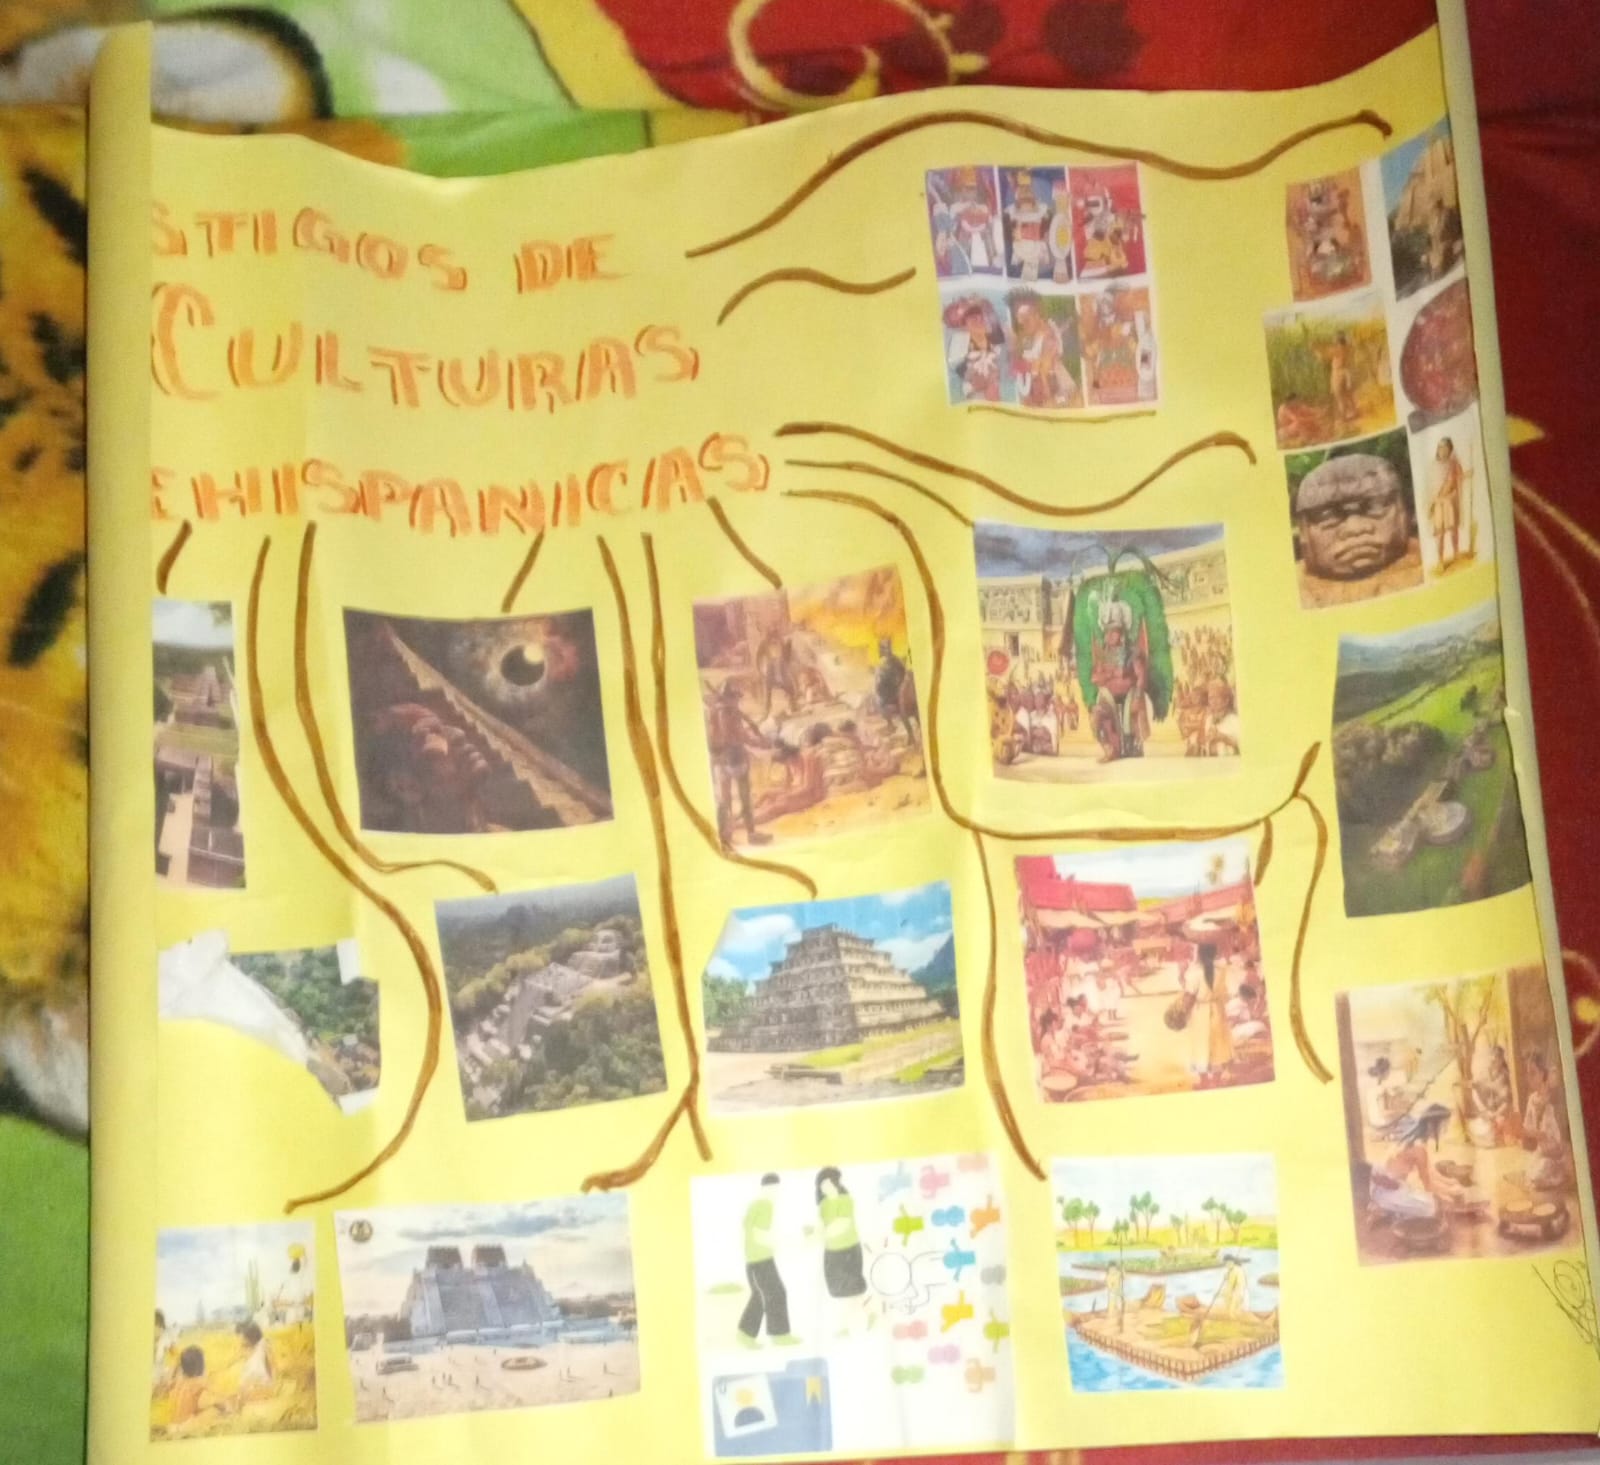 STIGOS DE
CULTURAS
EHISPANICAS